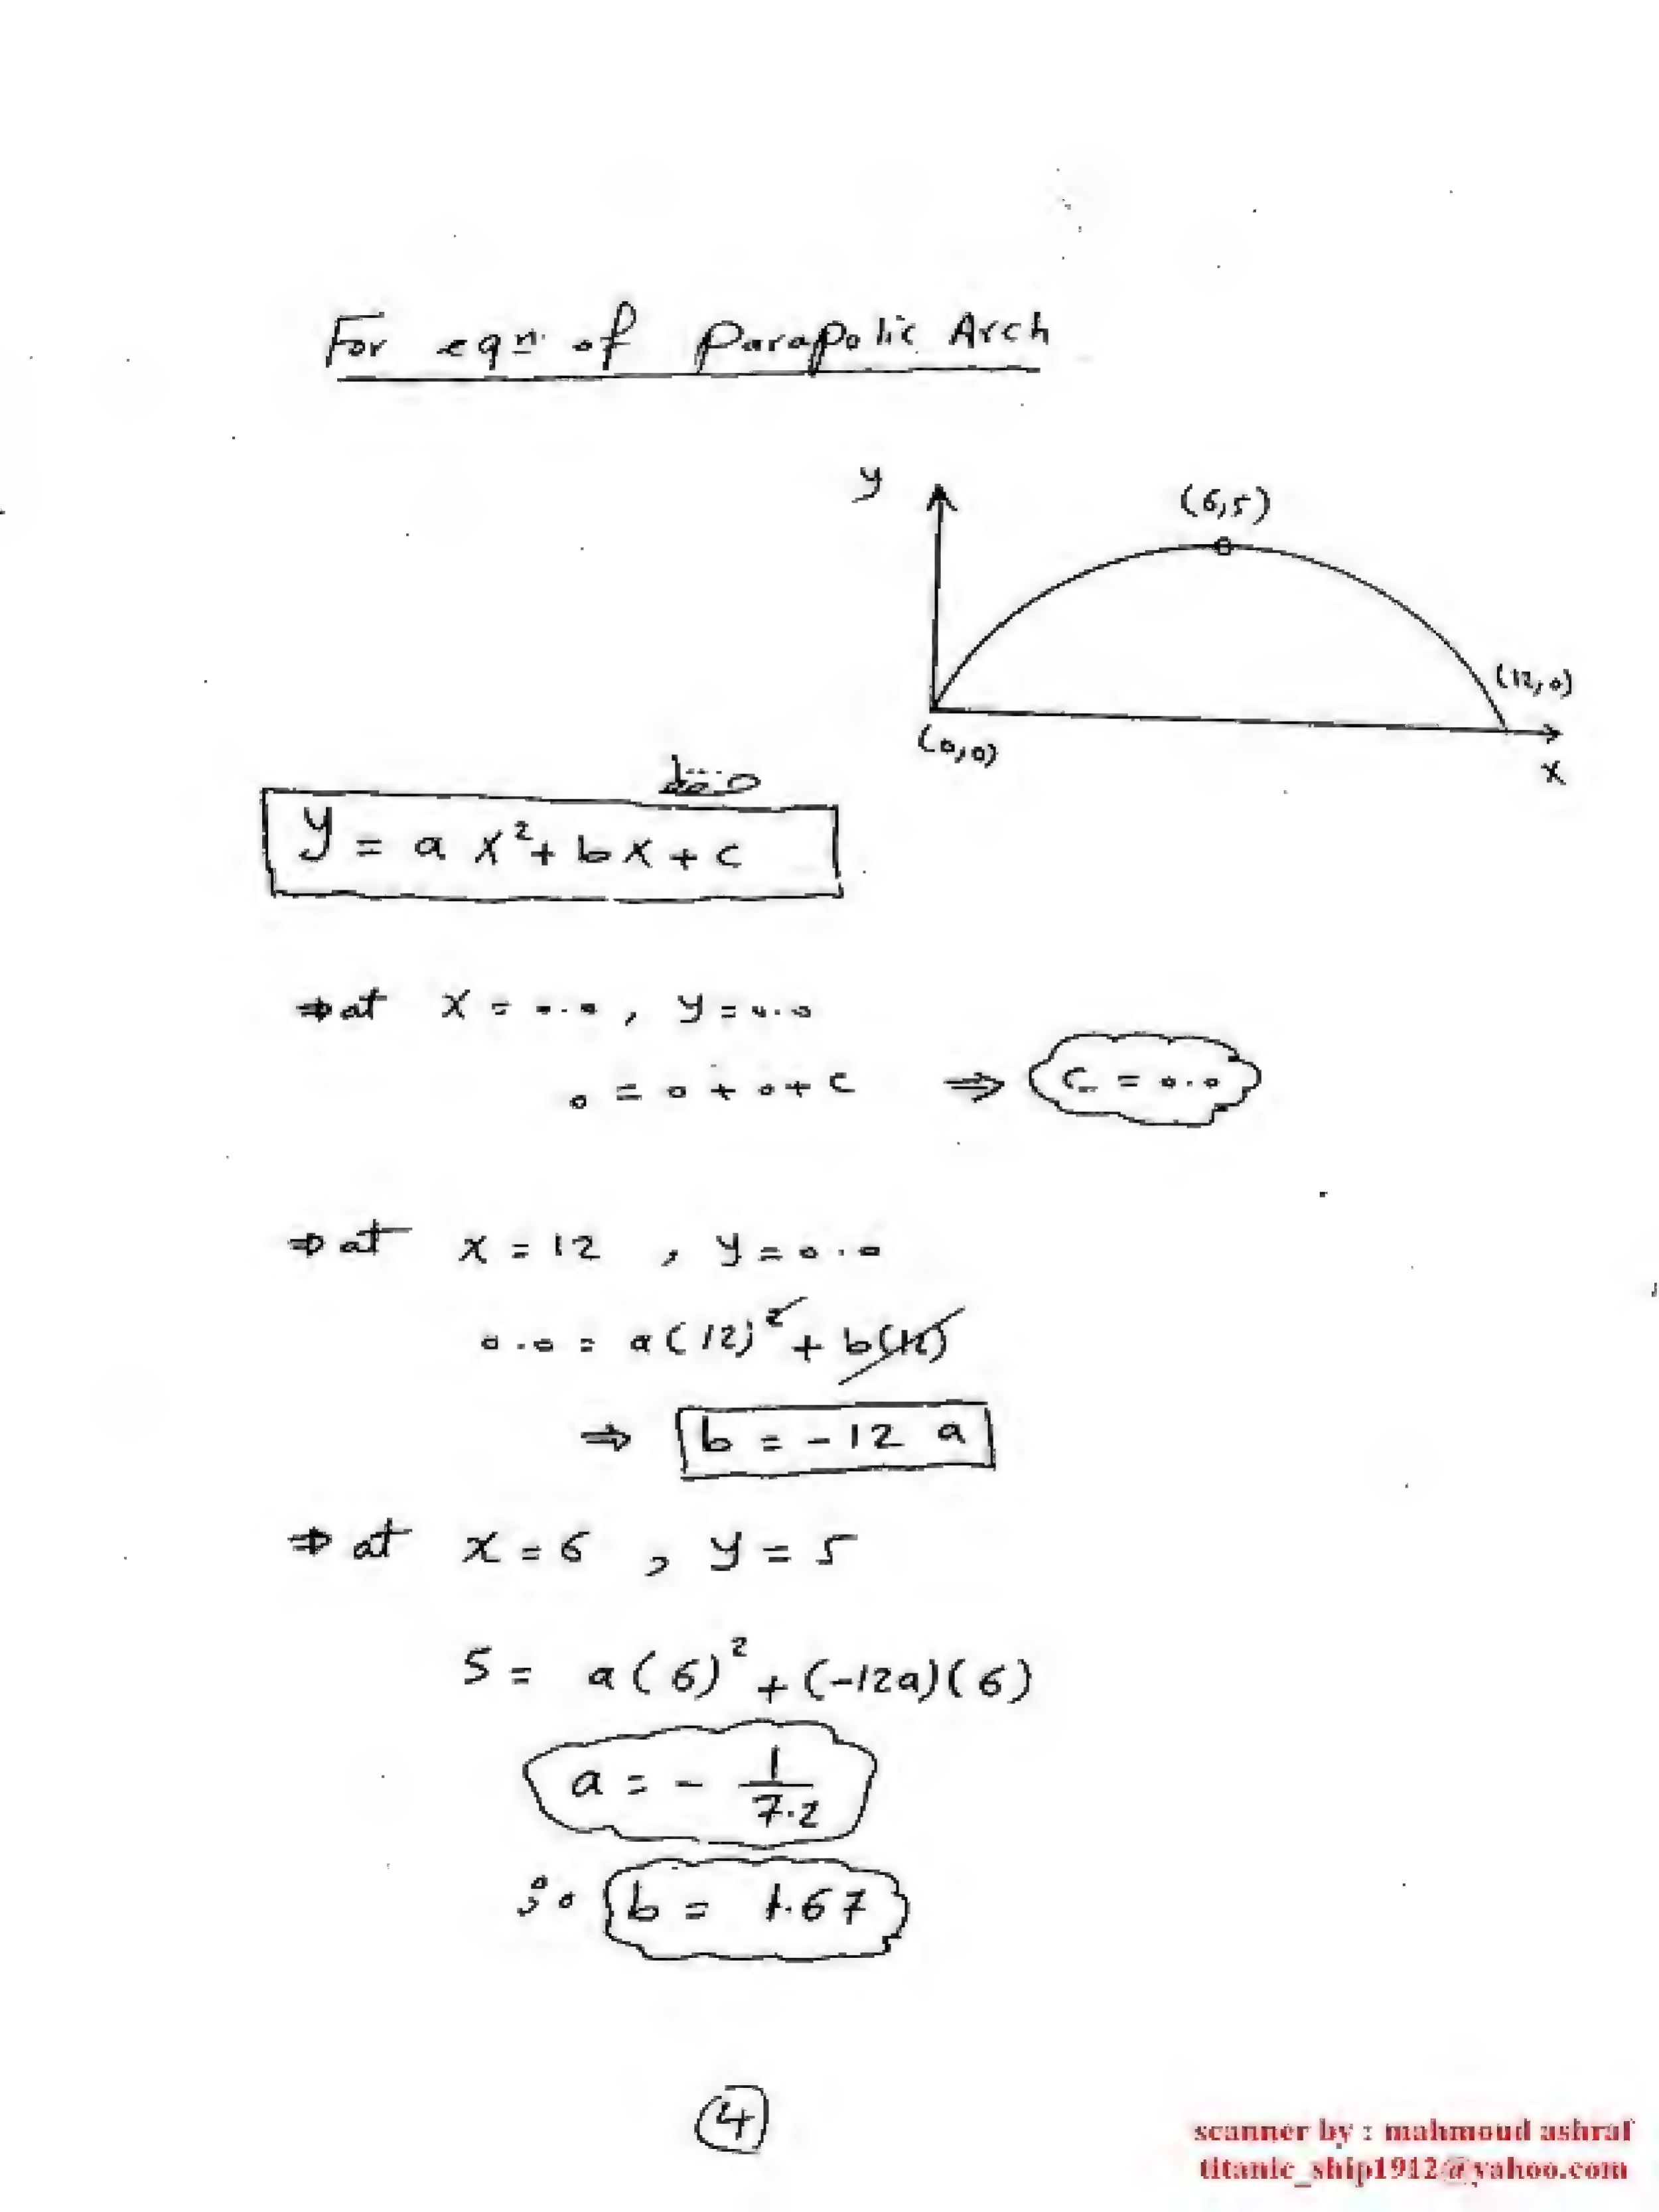 For eqn. of Parapolic Arch
y
(6,5)
(12,0)
(0,0)
x
حفظ
y = a x² + b x + c
⇒ at x = 0.0 , y = 0.0
0 = 0 + 0 + c ⇒ c = 0.0
⇒ at x = 12 , y = 0.0
0.0 = a(12)² + b(12)
⇒ b = -12 a
⇒ at x = 6 , y = 5
5 = a(6)² + (-12a)(6)
a = - 1/7.2
b = 1.67
4
scanner by : mahmoud ashraf
titanic_ship1912@yahoo.com